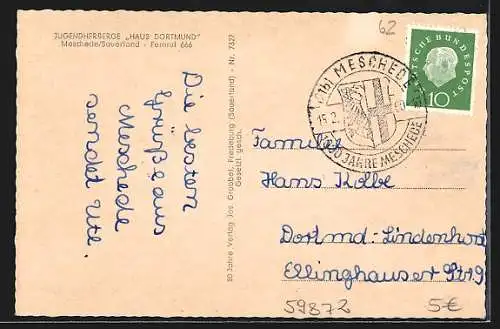 JUGENDHERBERGE „HAUS DORTMUND"
Meschede/Sauerland - Fernruf 666
Die besten
Grüße aus
Meschede
sendet Ute.
30 Jahre Verlag Jos. Grobbel, Fredeburg (Sauerland) - Nr. 7377
Gesetzl. gesch.
62
DEUTSCHE BUNDESPOST
10
(16) MESCHEDE
15.2.
1000 JAHRE MESCHEDE
Familie
Hans Kolbe
Dortmd-Lindenhorst
Ellinghauser Str. 9
59872
5€